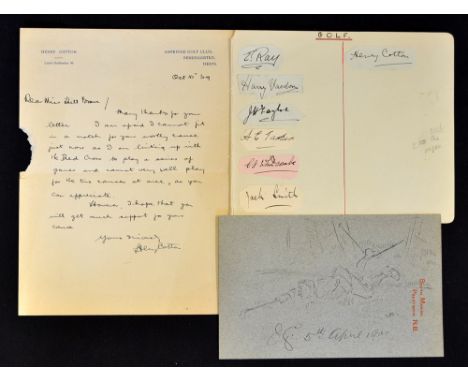 HENRY COTTON
ASHRIDGE GOLF CLUB,
BERKHAMSTED,
HERTS.
Dear Miss
Many thanks for your
letter. I am afraid I cannot fit
in a match for your worthy cause
just now as I am linking up with
the Red Cross to play a series of
games and cannot very well play
for the two causes at once, as you
can appreciate.
However, I hope that you
will get much support for your
cause.
Yours sincerely
Henry Cotton
GOLF.
E. Ray
Harry Vardon
J H Taylor
Jack Smith
Henry Cotton
5th April